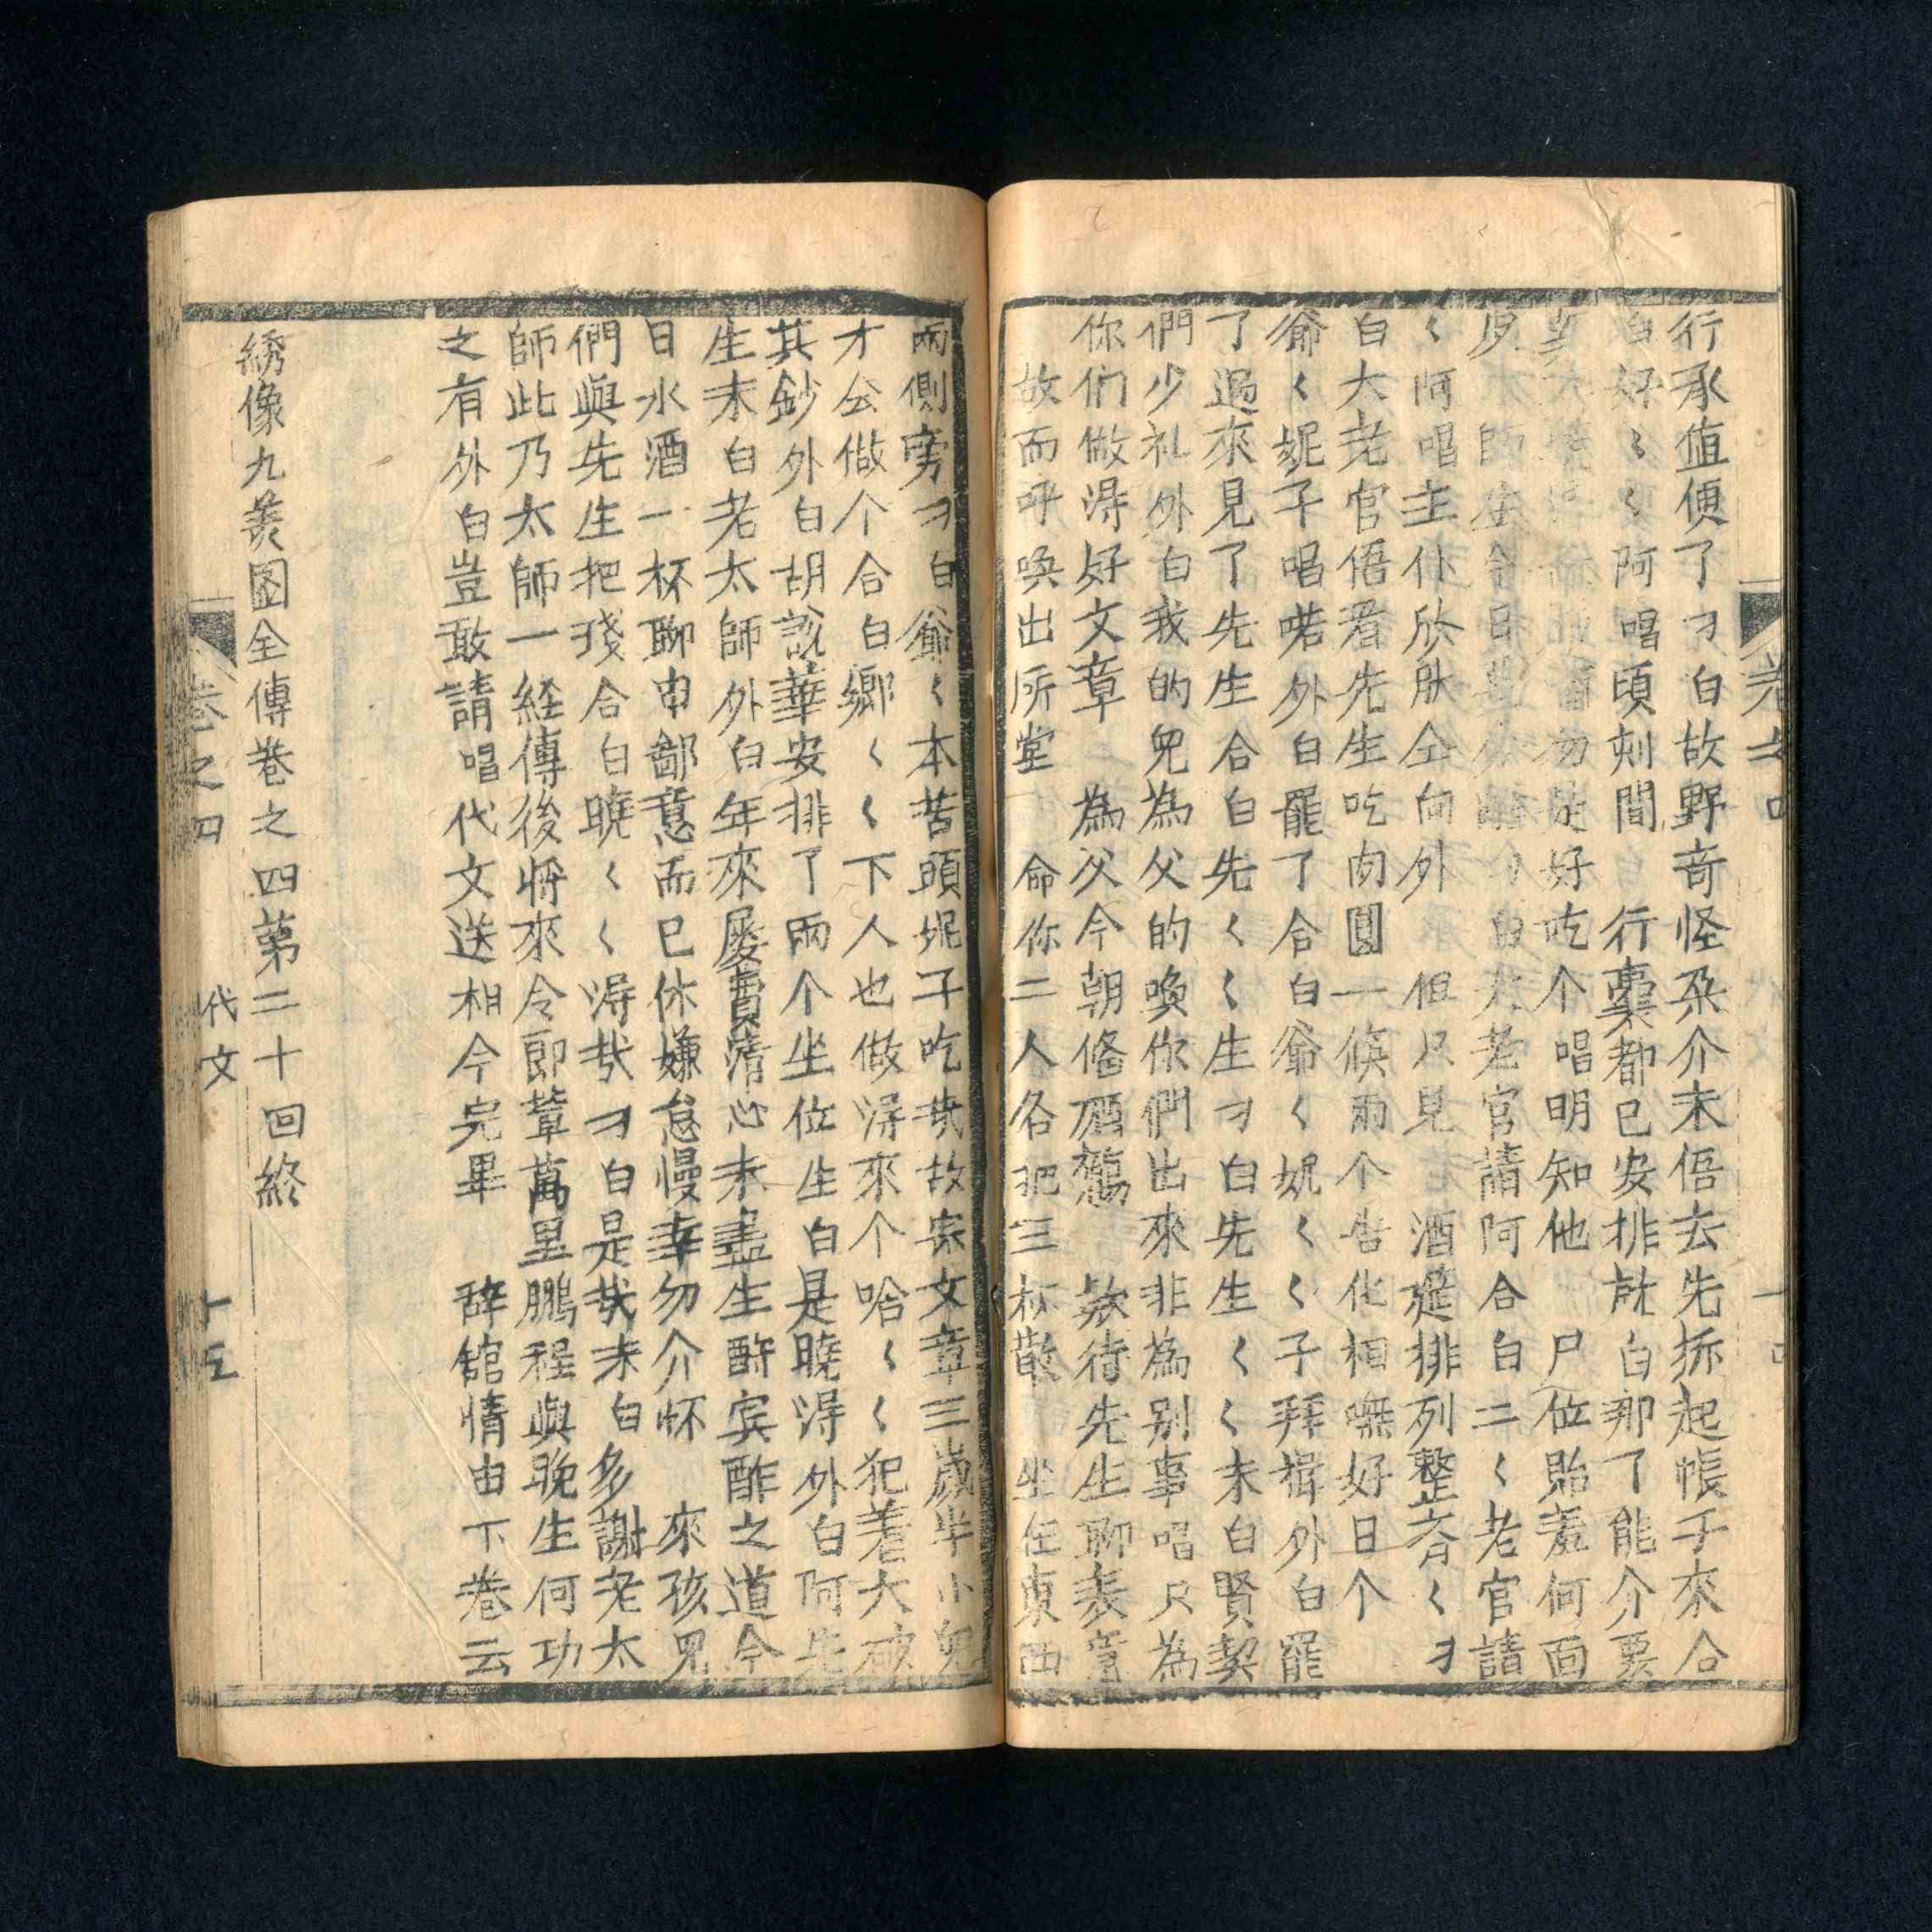 行承值便了 刁白故野奇怪朶介末倍去先拆起帳子來合
白好〻〱阿唱頃刻間 行裏都已安排就白那了能介要
勿是好吃个唱明知他 尸位貽羞何面
師 今日 白大老官請阿合白二〱老官請
〱阿唱主仆欣肰仝向外 但只見 酒筵排列整齐〱刁
白大老官倍着先生吃肉圓一候兩个告化相嘸好日个
爺〱妮子唱喏外白罷了合白爺〱妮〱〱子拜揖外白罷
了過來見了先生合白先〱〱生刁白先生〱〱末白賢契
們少礼外白我的兒為父的喚你們出來非為别事唱只為
你们做淂好文章 為父今朝俻酒 欵待先生聊表意
故而呼喚出㕔堂 命你二人各把三杯散 坐在東西
兩側旁刁白爺〱本苦頭妮子吃哉故宗文章三歲半小兒
才公做个合白鄉〱〱下人也做淂來个哈〱〱犯着大破
其鈔外白胡說華安排了兩个坐位生白是曉淂外白阿先
生末白老太師外白年來屡費清心未盡生酧賓酢之道今
日水酒一杯聊申鄙意而已休嫌怠慢幸勿介怀 來孩兒
們與先生把殘合白曉〱〱淂哉刁白是哉末白多謝老太
師此乃太師一経傳後將來令郎輩萬里鵬程與晚生何功
之有外白豈敢請唱代文送相今完畢 辞舘情由下巻云
綉像九美图全傳巻之四第二十回終
巻之四 代文 十五